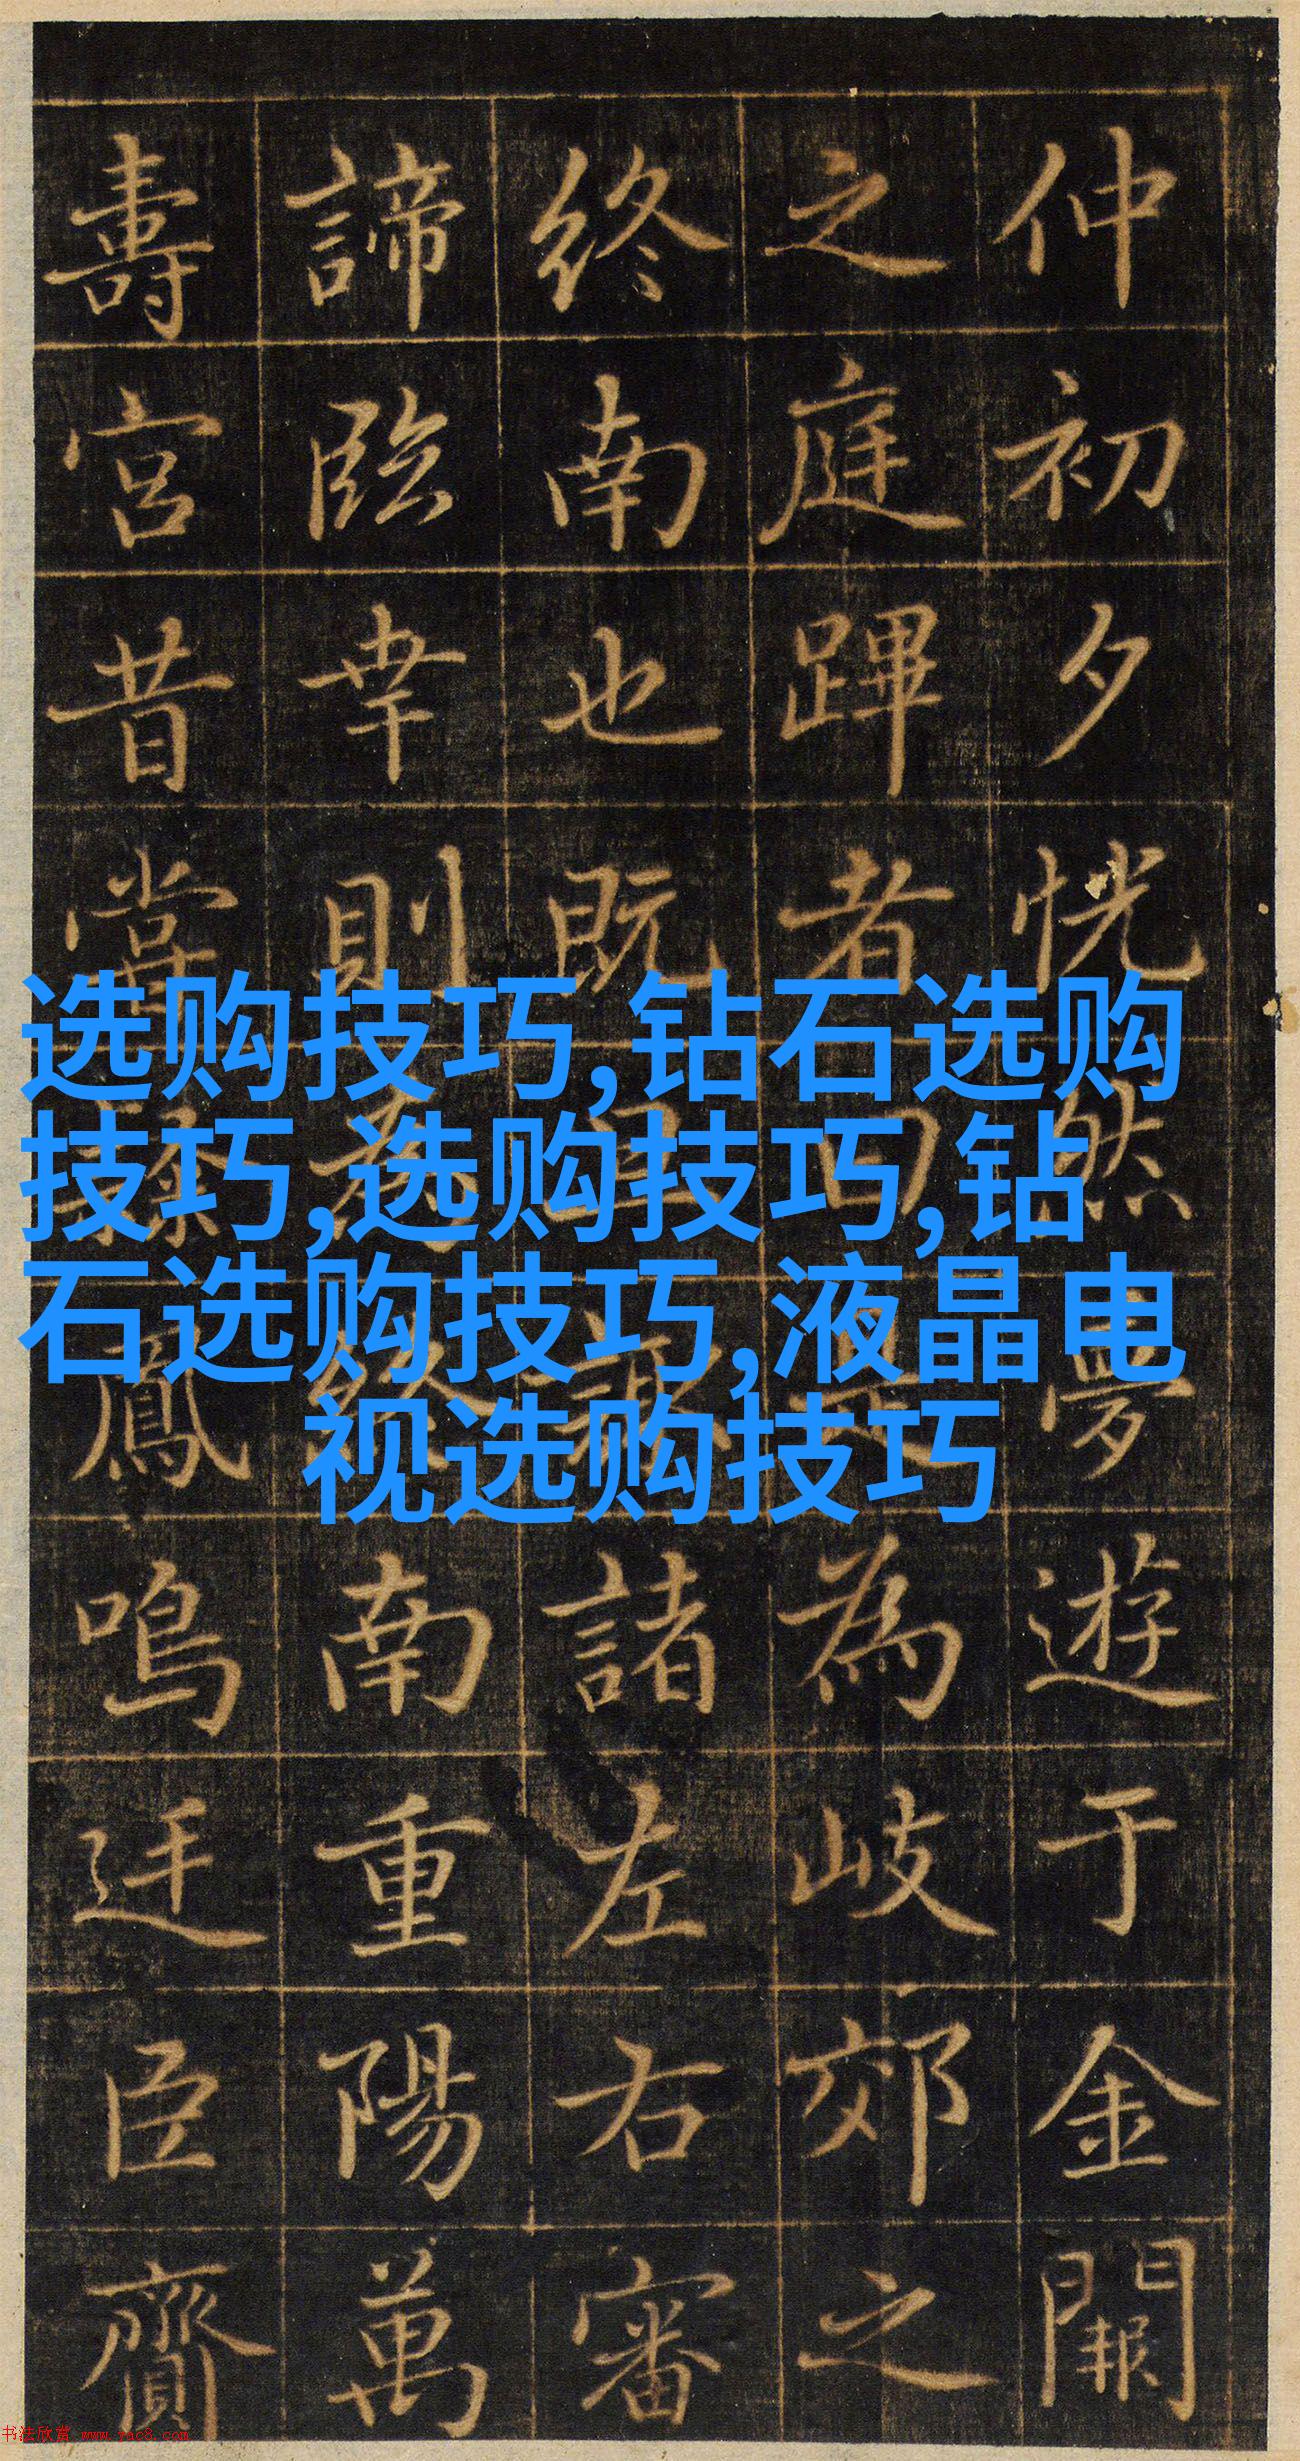 仲初夕恍然夢遊于金闕
之庭蹕者曰為岐郊之
終南也既諸左右審
諦臨幸則為終南重陽萬
壽宮昔嘗鳳鳴臣齎
选购技巧,钻石选购
技巧,选购技巧,钻
石选购技巧,液晶电
视选购技巧
书法欣赏 www.yac8.com